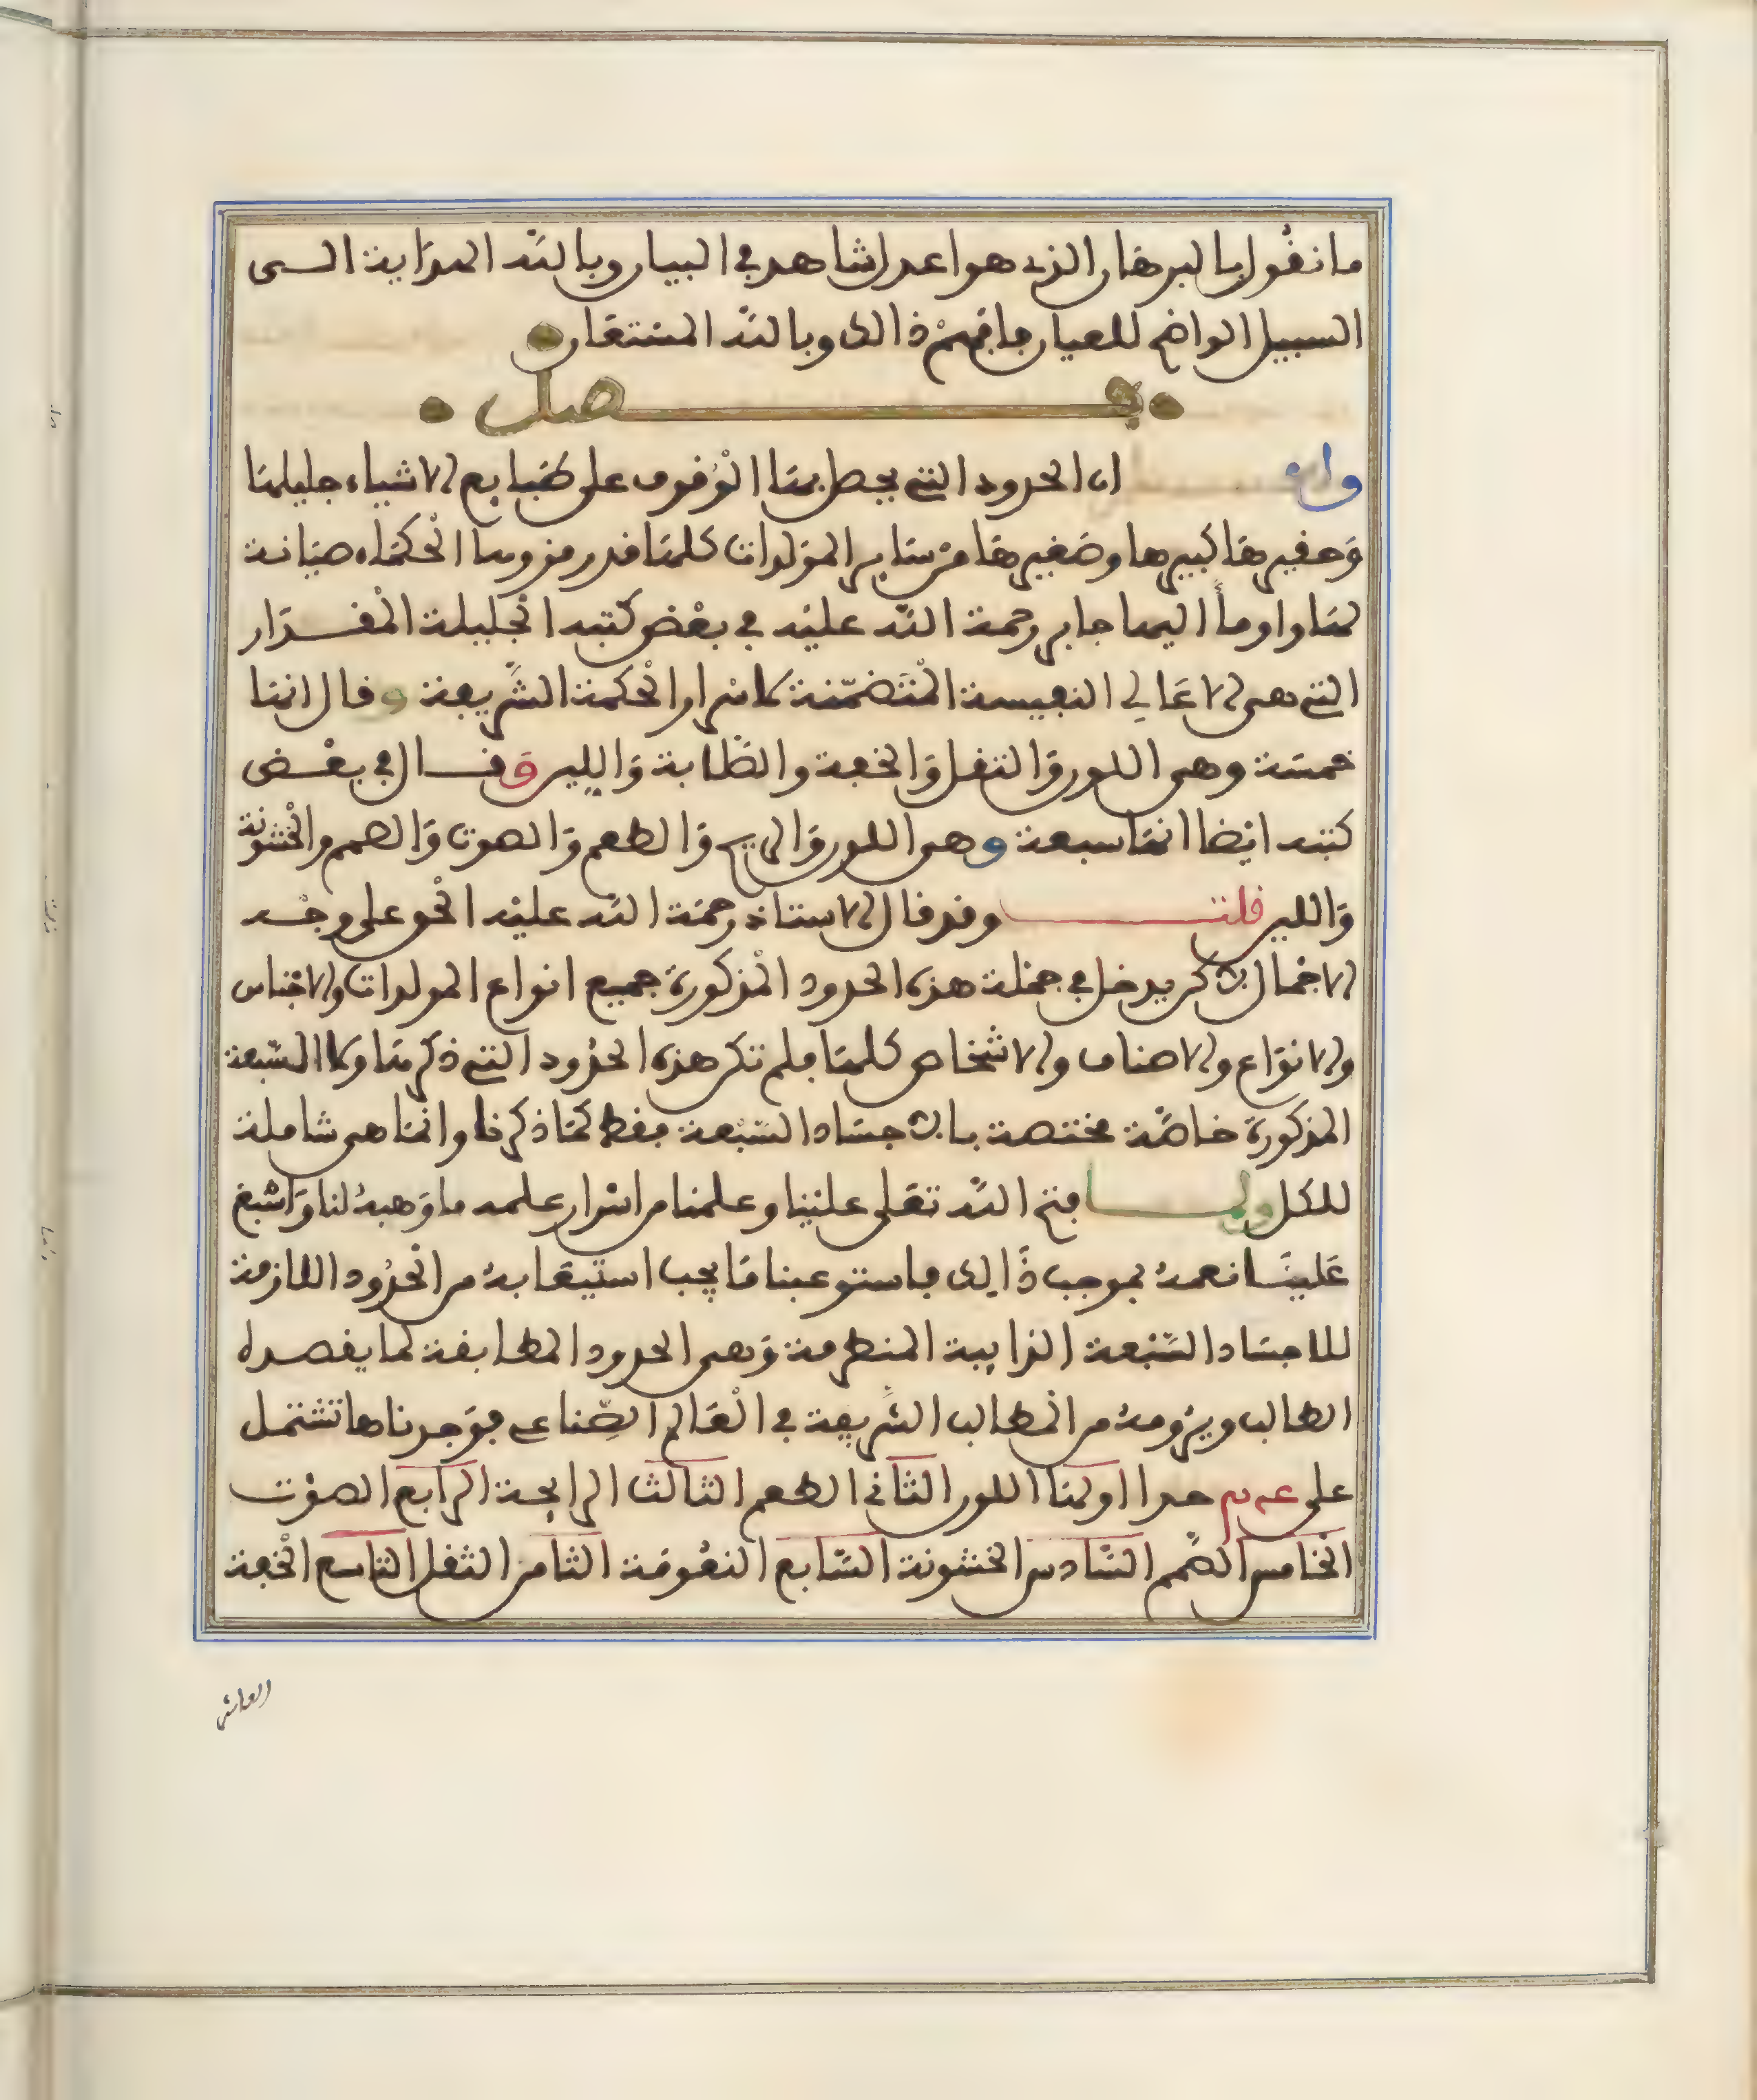 ما نقول بالبرهان الذي هو اعدل شاهد في البيان وبالله الهداية الى
السبيل الواضح للعيان فافهم ذالك وبالله المستعان
فصل
واعلم ان الحدود التي يحصل بها الوقوف على طبايع الاشياء جليلها
وحقيرها كبيرها وصغيرها من ساير المولدات كلها قد رمزوها الحكماء صيانة
لها واومأ اليها جابر رحمة الله عليه في بعض كتبه الجليلة المقدار
التي هي الاعالي النفيسة المتضمنة لاسرار الحكمة الشريفة وقال انها
خمسة وهي اللون والثقل والخفة والصلابة واللين وقال في بعض
كتبه ايضا انها سبعة وهي اللون والريح والطعم والصوت والصمم والخشونة
واللين قلت وقد قال الاستاذ رحمة الله عليه الحق على وجه
الاجمال لاكن يدخل في جملة هذه الحدود المذكورة جميع انواع المولدات والاجناس
والانواع والاصناف والاشخاص كلها فلم تكن هذه الحدود التي ذكرها ولا السبعة
المذكورة خاصة مختصة بالاجساد السبعة فقط كما ذكرنا وانما هي شاملة
للكل ولما فتح الله تعلى علينا وعلمنا من اسرار علمه ما وهبه لنا واسبغ
علينا نعمه بموجب ذالك فاستوعبنا ما يجب استيعابه من الحدود اللازمة
للاجساد السبعة الذايبة المنطرقة وهي الحدود المطابقة لما يقصده
الطالب ويرومه من المطالب الشريفة في العالم الصناعي فوجدناها تشتمل
على حدا اولها اللون الثاني الطعم الثالث الرايحة الرابع الصوت
الخامس الصمم السادس الخشونة السابع النعومة الثامن الثقل التاسع الخفة
العاشر